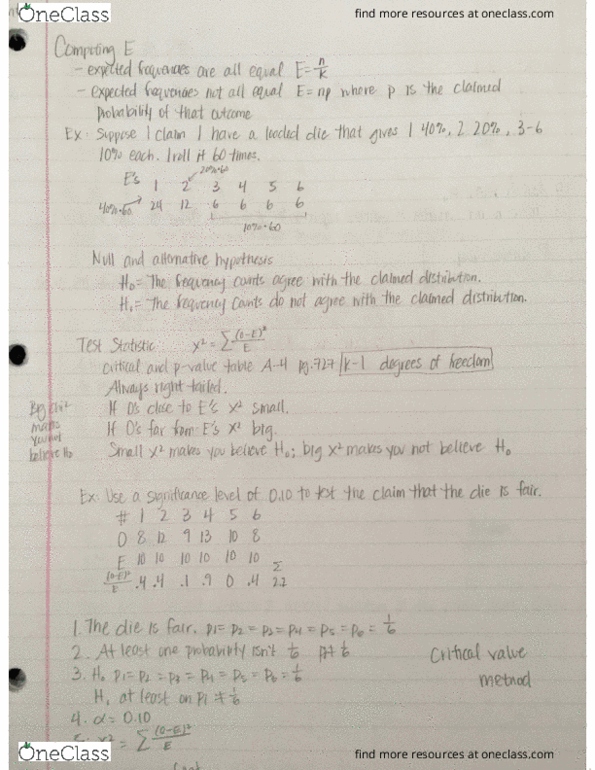 OneClass
find more resources at oneclass.com
Computing E
- expected frequencies are all equal E = n/k
- expected frequencies not all equal E = np where p is the claimed
probability of that outcome
Ex: Suppose I claim I have a loaded die that gives 1 40%, 2 20%, 3-6
10% each. I roll it 60 times.
20%·60
E's 1 2 3 4 5 6
40%·60 24 12 6 6 6 6
10%·60
Null and alternative hypothesis
H₀ = The frequency counts agree with the claimed distribution.
H₁ = The frequency counts do not agree with the claimed distribution.
Test Statistic x² = Σ (O-E)²/E
Critical and p-value table A-4 pg. 727 k-1 degrees of freedom
Always right tailed.
If O's close to E's x² small.
If O's far from E's x² big.
Small x² makes you believe H₀; big x² makes you not believe H₀
Big chi²
makes
you not
believe H₀
Ex: Use a significance level of 0.10 to test the claim that the die is fair.
# 1 2 3 4 5 6
O 8 12 9 13 10 8
E 10 10 10 10 10 10 Σ
(O-E)²/E .4 .4 .1 .9 0 .4 2.2
1. The die is fair. p₁ = p₂ = p₃ = p₄ = p₅ = p₆ = 1/6
2. At least one probability isn't 1/6 p≠1/6
3. H₀ p₁ = p₂ = p₃ = p₄ = p₅ = p₆ = 1/6
H₁ at least on pi ≠ 1/6
Critical value
method
4. α = 0.10
5. x² = Σ (O-E)²/E
OneClass
find more resources at oneclass.com